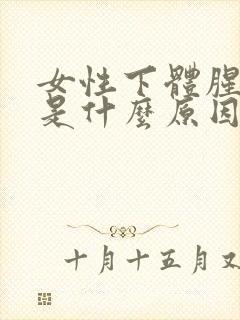 女性下體腥
是什麼原因
十月十五月又